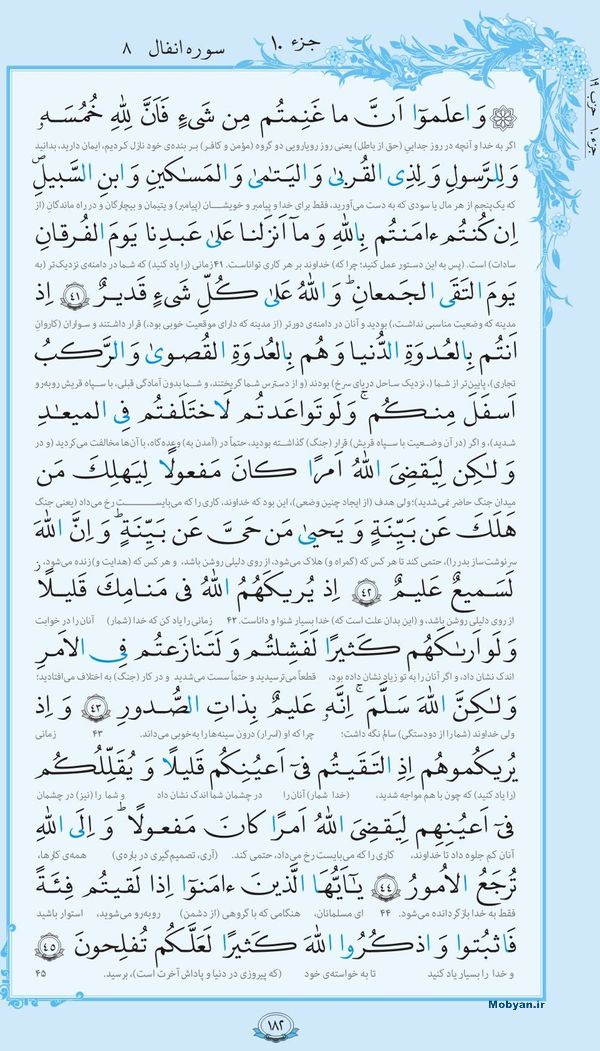 جزء ۱۰
سوره انفال ۸
جزء ۱۰ حزب ۱۹
وَ اعلَموا اَنَّ ما غَنِمتُم مِن شَیءٍ فَاَنَّ لِلّٰهِ خُمُسَهٗ
اگر به خدا و آنچه در روز جدایی (حق از باطل) یعنی روز رویارویی دو گروه (مؤمن و کافر) بر بنده‌ی خود نازل کردیم، ایمان دارید، بدانید
وَ لِلرَّسولِ وَ لِذِی القُربیٰ وَ الیَتامیٰ وَ المَساکینِ وَ ابنِ السَّبیلِ
که یک‌پنجم از هر مال یا سودی که به دست می‌آورید، فقط برای خدا و پیامبر و خویشان (پیامبر) و یتیمان و بیچارگان و در راه ماندگان (از
اِن کُنتُم ءامَنتُم بِاللّٰهِ وَ ماۤ اَنزَلنا عَلیٰ عَبدِنا یَومَ الفُرقانِ
سادات) است. (پس به این دستور عمل کنید؛ چرا که) خداوند بر هر کاری تواناست. ۴۱ زمانی (را یاد کنید) که شما در دامنه‌ی نزدیک‌تر (به
یَومَ التَقَی الجَمعانِ ۗ وَ اللّٰهُ عَلیٰ کُلِّ شَیءٍ قَدیرٌ ۴۱ اِذ
مدینه که وضعیت مناسبی نداشت،) بودید و آنان در دامنه‌ی دورتر (از مدینه که دارای موقعیت خوبی بود،) قرار داشتند و سواران (کاروان
اَنتُم بِالعُدوَةِ الدُّنیا وَ هُم بِالعُدوَةِ القُصویٰ وَ الرَّکبُ
تجاری)، پایین‌تر از شما (، نزدیک ساحل دریای سرخ) بودند (و از دسترس شما گریختند، و شما بدون آمادگی قبلی، با سپاه قریش روبه‌رو
اَسفَلَ مِنکُم ۚ وَ لَو تَواعَدتُم لَاختَلَفتُم فِی المیعادِ
شدید)، و اگر (در آن وضعیت با سپاه قریش) قرار (جنگ) گذاشته بودید، حتماً در (آمدن به) وعده‌گاه، با آن‌ها مخالفت می‌کردید (و در
وَ لٰکِن لِیَقضِیَ اللّٰهُ اَمرًا کانَ مَفعولًا لِیَهلِکَ مَن
میدان جنگ حاضر نمی‌شدید)؛ ولی هدف (از ایجاد چنین وضعی)، این بود که خداوند، کاری را که می‌بایست رخ می‌داد (یعنی جنگ
هَلَکَ عَن بَیِّنَةٍ وَ یَحییٰ مَن حَیَّ عَن بَیِّنَةٍ ۗ وَ اِنَّ اللّٰهَ
سرنوشت‌ساز بدر را)، حتمی کند تا هر کس که (گمراه و) هلاک می‌شود، از روی دلیلی روشن باشد، و هر کس که (هدایت و) زنده می‌شود،
لَسَمیعٌ عَلیمٌ ۴۲ اِذ یُریکَهُمُ اللّٰهُ فی مَنامِکَ قَلیلًا
از روی دلیلی روشن باشد، و (این بدان علت است که) خدا بسیار شنوا و داناست. ۴۲ زمانی را یاد کن که خدا (شمار) آنان را در خوابت
وَ لَو اَراکَهُم کَثیرًا لَفَشِلتُم وَ لَتَنازَعتُم فِی الاَمرِ
اندک نشان داد، و اگر آنان را به تو زیاد نشان داده بود، قطعاً می‌ترسیدید و حتماً سست می‌شدید و در کار (جنگ) به اختلاف می‌افتادید؛
وَ لٰکِنَّ اللّٰهَ سَلَّمَ ۚ اِنَّهٗ عَلیمٌ بِذاتِ الصُّدورِ ۴۳ وَ اِذ
ولی خداوند (شما را از دودستگی) سالم نگه داشت؛ چرا که او (اسرار) درون سینه‌ها را به‌خوبی می‌داند. ۴۳ زمانی
یُریکُموهُم اِذِ التَقَیتُم فیۤ اَعیُنِکُم قَلیلًا وَ یُقَلِّلُکُم
(را یاد کنید) که چون با هم مواجه شدید، (خدا شمار) آنان را در چشمان شما اندک نشان داد و شما را (نیز) در چشمان
فیۤ اَعیُنِهِم لِیَقضِیَ اللّٰهُ اَمرًا کانَ مَفعولًا ۗ وَ اِلَی اللّٰهِ
آنان کم جلوه داد تا خداوند، کاری را که می‌بایست رخ می‌داد، حتمی کند. (آری، تصمیم‌گیری در باره‌ی) همه‌ی کارها،
تُرجَعُ الاُمورُ ۴۴ یٰۤاَیُّهَا الَّذینَ ءامَنوۤا اِذا لَقیتُم فِئَةً
فقط به خدا بازگردانده می‌شود. ۴۴ ای مسلمانان، هنگامی که با گروهی (از دشمن) روبه‌رو می‌شوید، استوار باشید
فَاثبُتوا وَ اذکُرُوا اللّٰهَ کَثیرًا لَعَلَّکُم تُفلِحونَ ۴۵
و خدا را بسیار یاد کنید تا به خواسته‌ی خود (که پیروزی در دنیا و پاداش آخرت است)، برسید. ۴۵
۱۸۲
Mobyan.ir